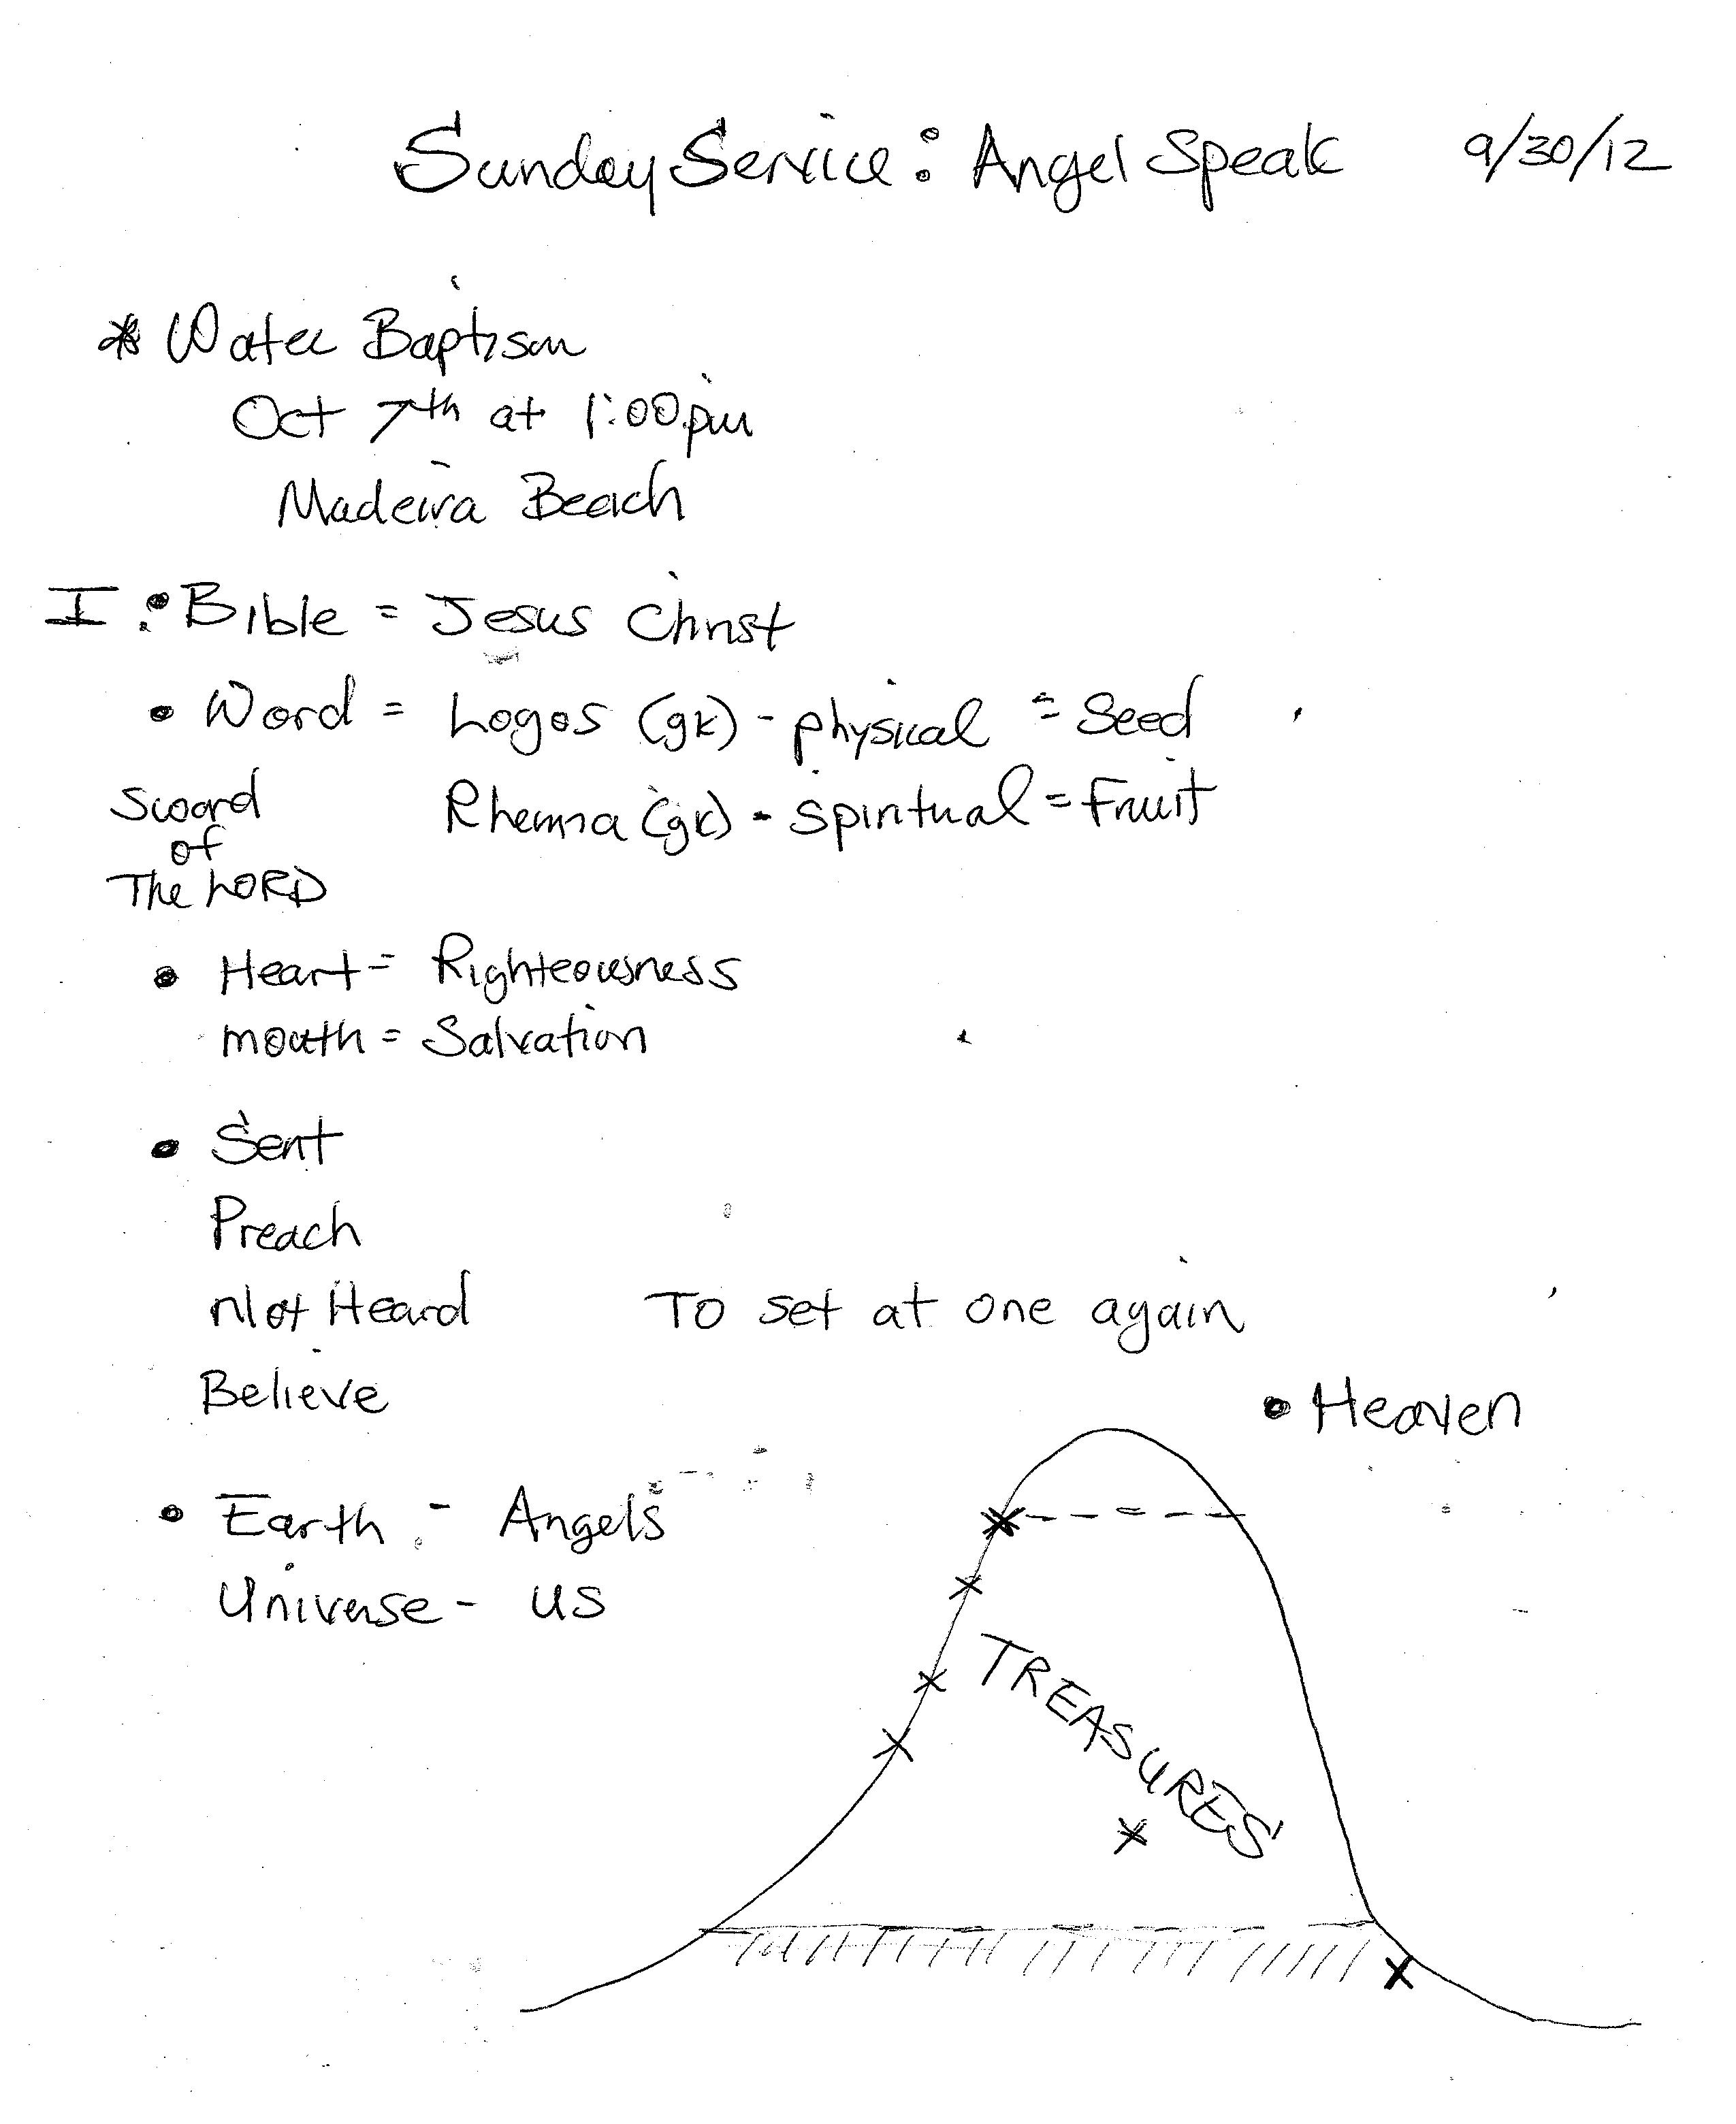 Sunday Service: Angel Speak 9/30/12
* Water Baptism
Oct 7th at 1:00pm
Madeira Beach
I : • Bible = Jesus Christ
• Word = Logos (gk) - physical = Seed
Sword of The LORD
Rhema (gk) - Spiritual = Fruit
• Heart = Righteousness
mouth = Salvation
• Sent
Preach
Not Heard To set at one again
Believe
• Heaven
• Earth - Angels
Universe - us
TREASURES